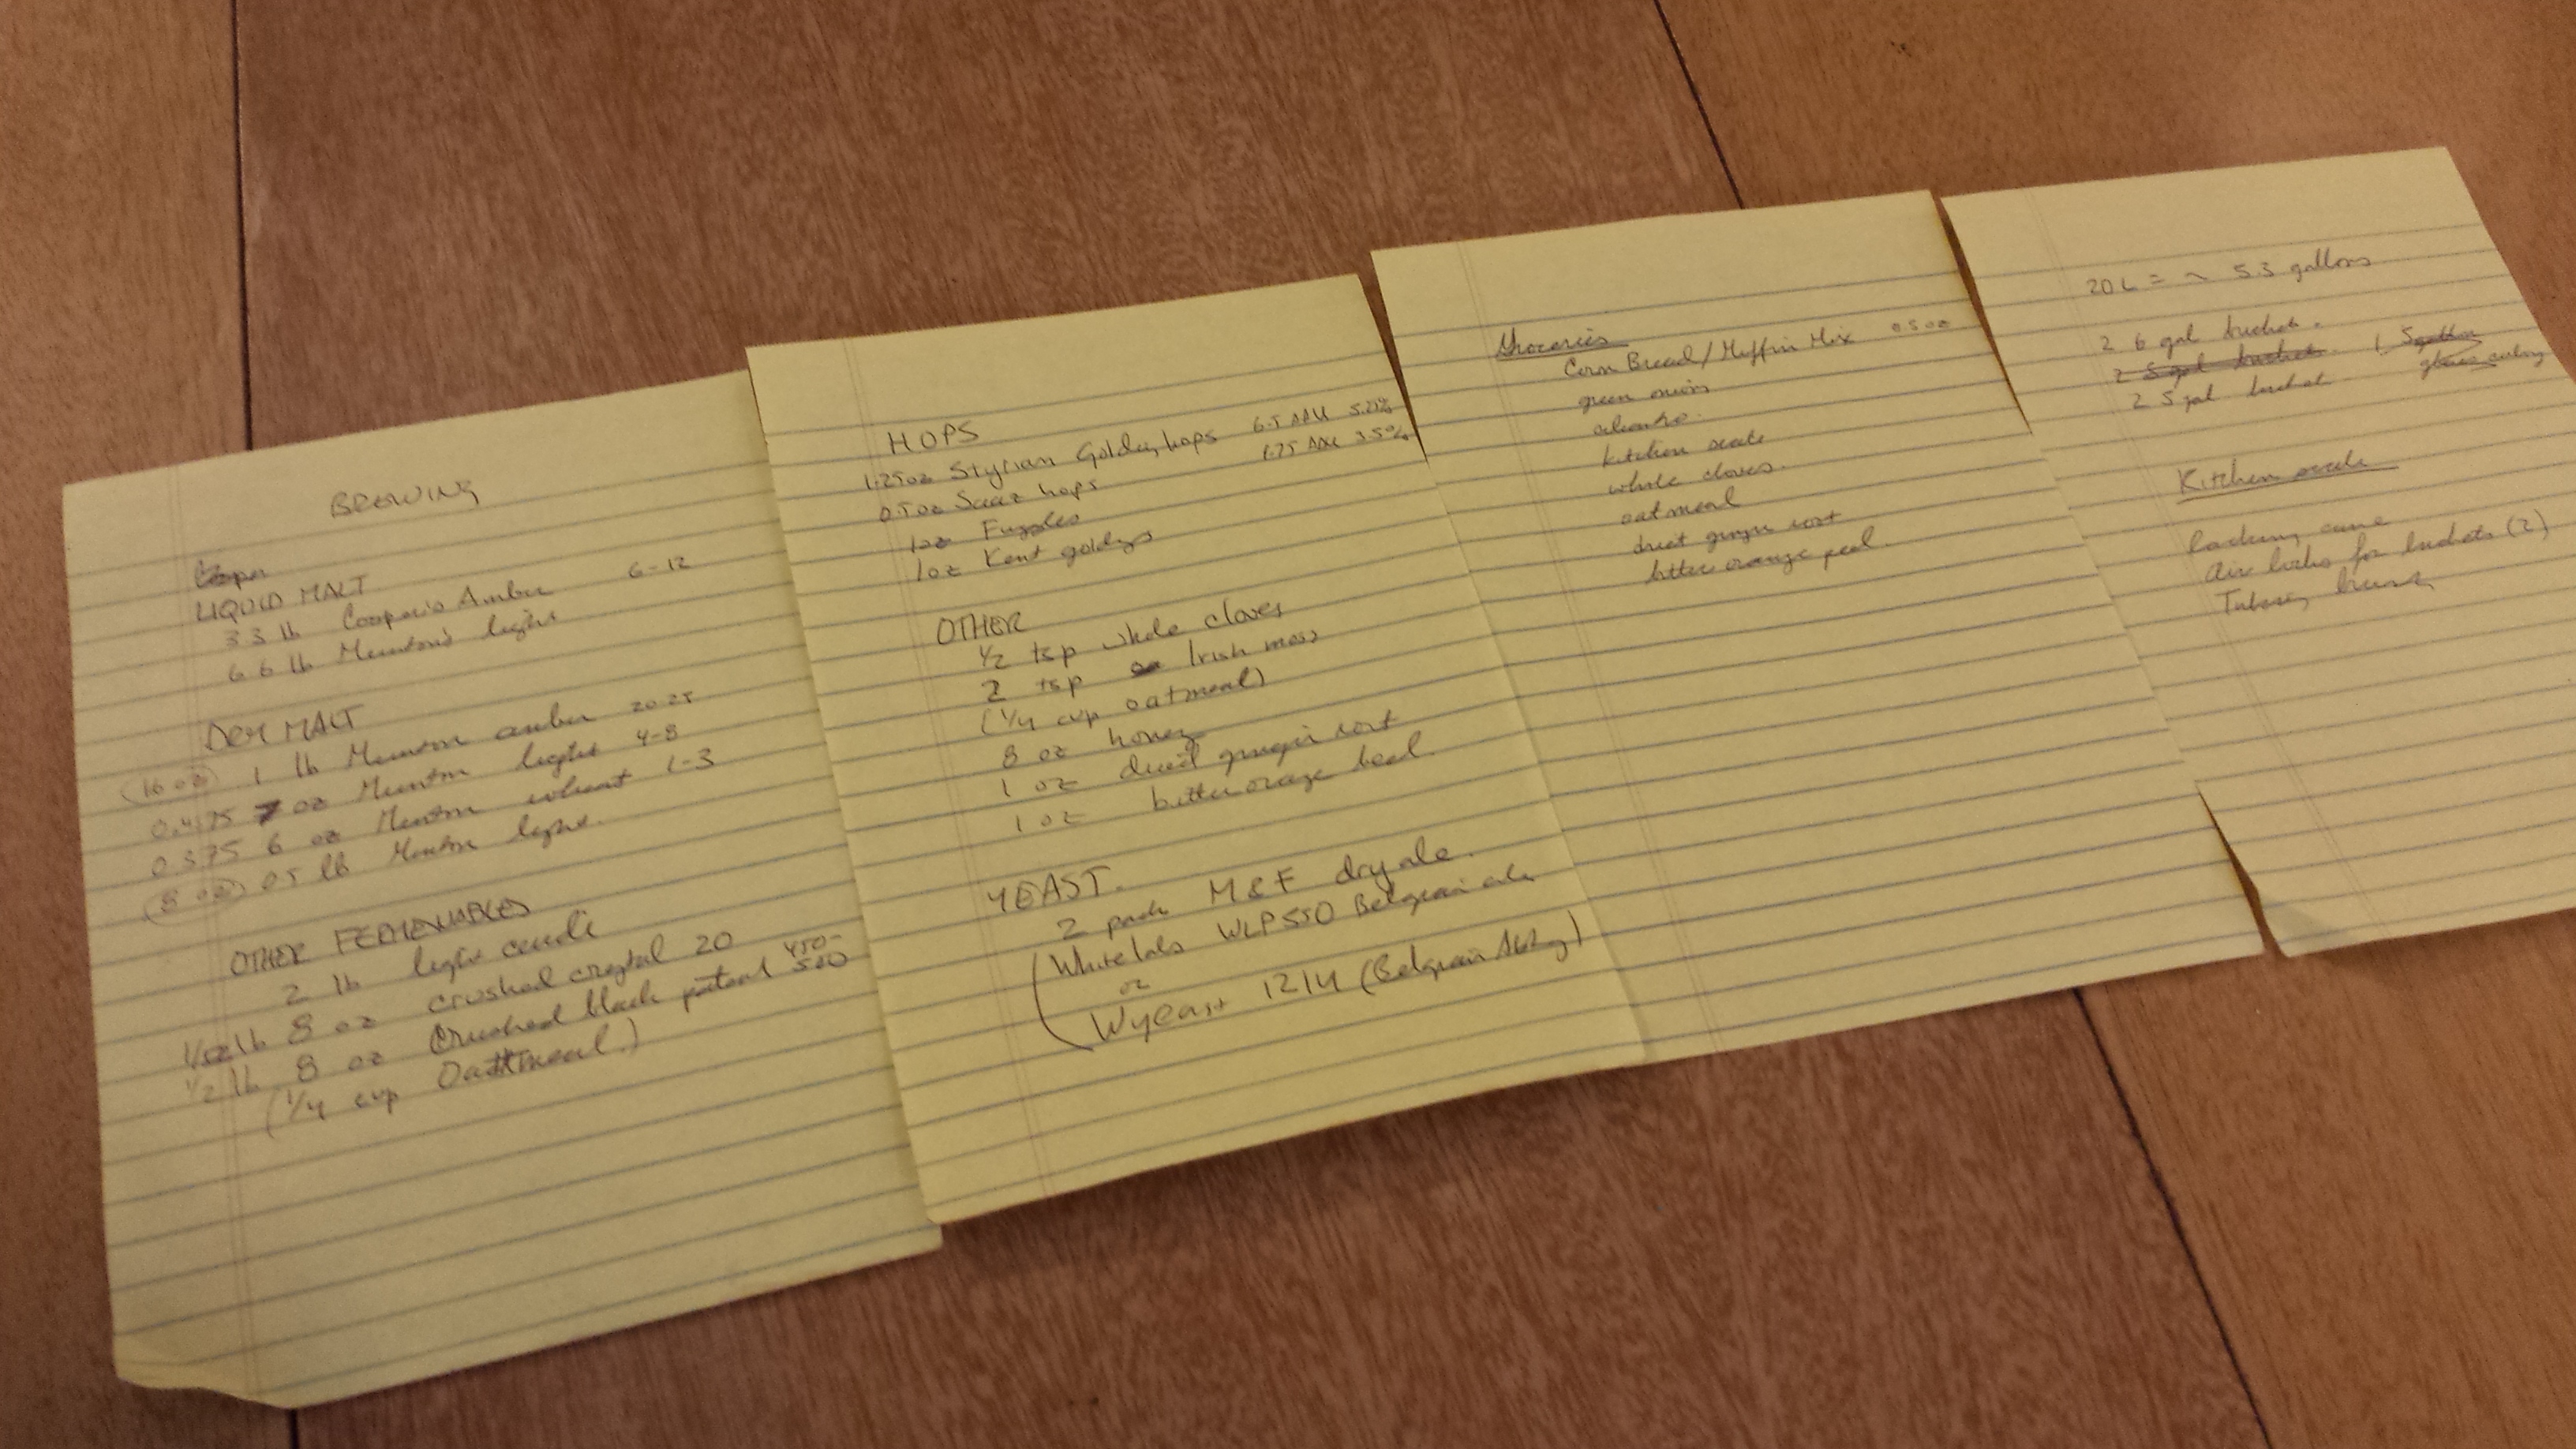 BREWING
LIQUID MALT
3.3 lb Cooper's Amber 6-12
6.6 lb Munton's light
DRY MALT
(16 oz) 1 lb Munton amber 20-25
0.4375 7 oz Munton light 4-8
0.375 6 oz Munton wheat 1-3
(8 oz) 0.5 lb Munton light.
OTHER FERMENTABLES
2 lb light candi
1/2 lb 8 oz crushed crystal 20
1/2 lb 8 oz Crushed black patent 450-500
(1/4 cup Oatmeal.)
HOPS
1.25oz Styrian Goldings hops 6.5 AAU 5.25%
0.5oz Saaz hops 1.75 AAU 3.5%
1oz Fuggles
1oz Kent goldings
OTHER
1/2 tsp whole cloves
2 tsp Irish moss
(1/4 cup oatmeal)
8 oz honey
1 oz dried ginger root
1 oz bitter orange peel.
YEAST.
2 packs M&F dry ale.
(White labs WLP550 Belgian ale
or
Wyeast 1214 (Belgian Abbey)
Groceries
Corn Bread/Muffin Mix 0.5 oz
green onions
cilantro.
kitchen scale
whole cloves.
oatmeal
dried ginger root
bitter orange peel.
20 L = ~ 5.3 gallons
2 6 gal bucket.
2 5 gal bucket. 1 5 gallon
glass carboy
2 5 gal bucket
Kitchen scale
Racking cane
Air locks for buckets (2)